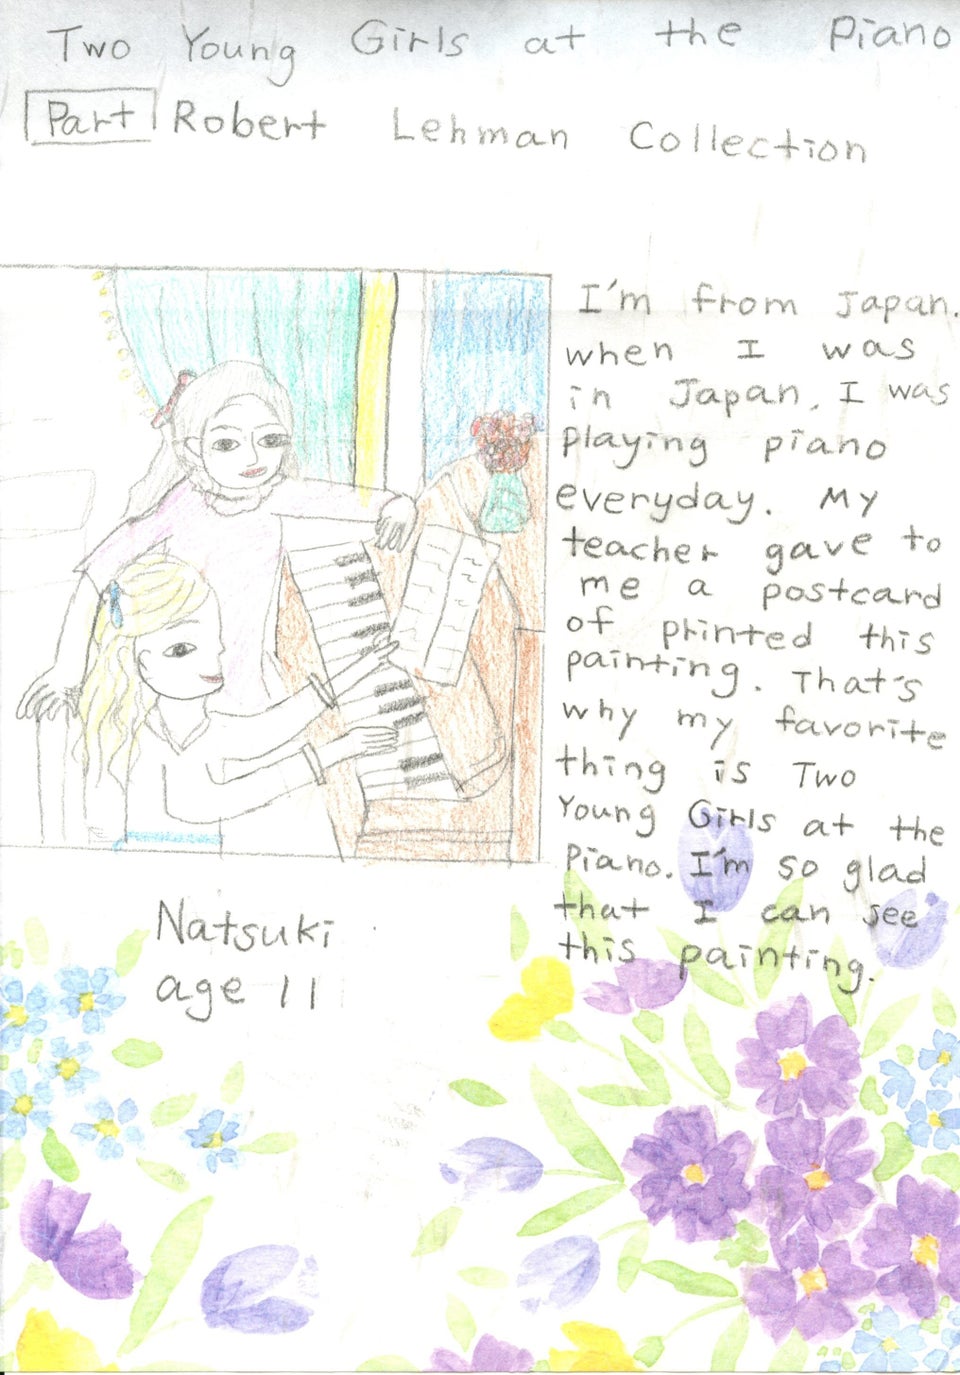 Two Young Girls at the Piano
Part Robert Lehman Collection
I'm from Japan.
when I was
in Japan, I was
playing piano
everyday. My
teacher gave to
me a postcard
of printed this
painting. That's
why my favorite
thing is Two
Young Girls at the
Piano. I'm so glad
that I can see
this painting.
Natsuki
age 11